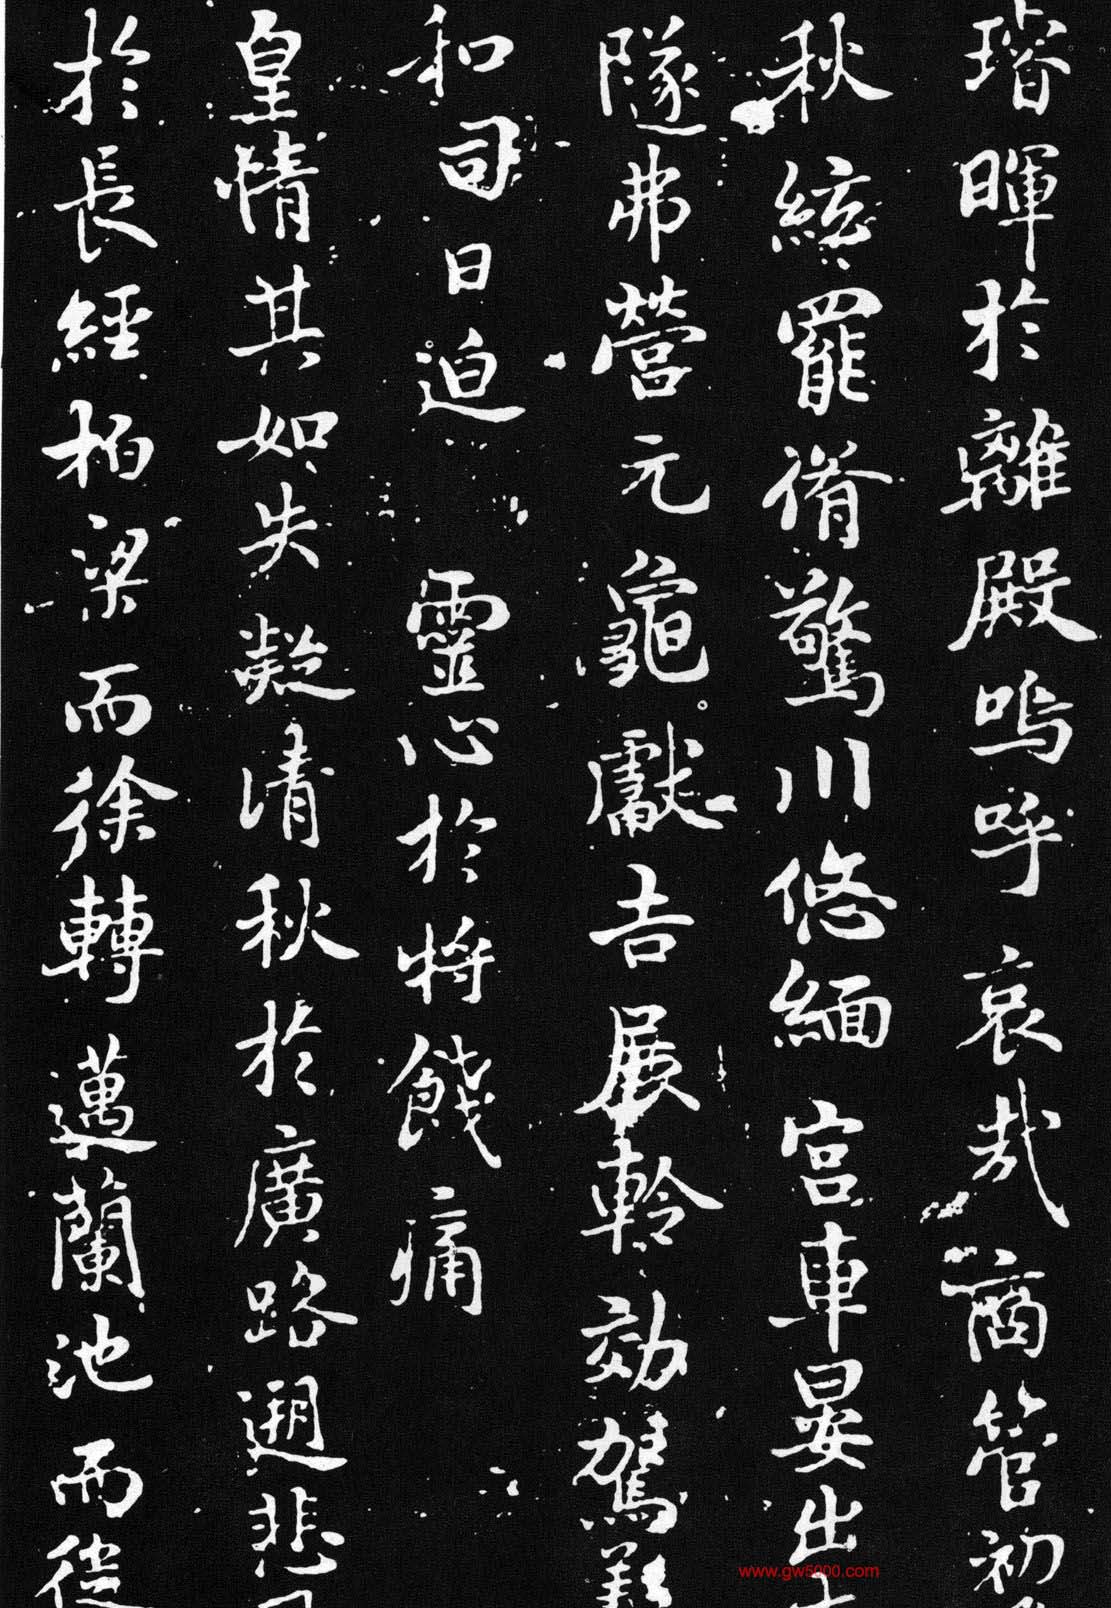 璿暉於離殿嗚呼哀哉商管初
秋絃罷脩驚川悠緬宮車晏出
隧弗營元龜獻吉展軨効駕
和司日迫靈心於將餞痛
皇情其如失凝清秋於廣路遡悲
於長經柏梁而徐轉邁蘭池而徒
www.gw5000.com